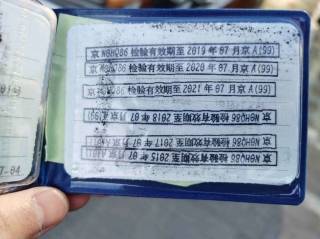 京NGHQ86检验有效期至2019年07月京A(99)
京NGHQ86检验有效期至2020年07月京A(99)
检验有效期至2021年07月京A(99)
京NGHQ86检验有效期至2018年07月京
京NGHQ86检验有效期至2017年07月京
京NGHQ86检验有效期至2015年07月京